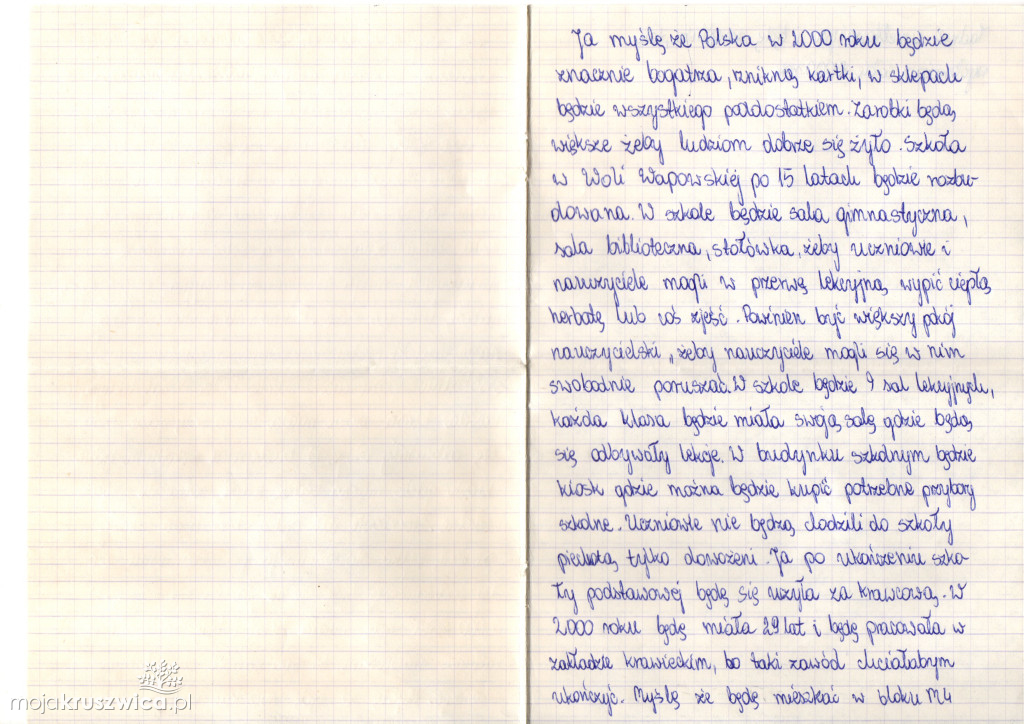 Ja myślę że Polska w 2000 roku będzie
znacznie bogatsza, znikną kartki, w sklepach
będzie wszystkiego poddostatkiem. Zarobki będą
większe żeby ludziom dobrze się żyło. Szkoła
w Woli Wapowskiej po 15 latach będzie rozbu-
dowana. W szkole będzie sala gimnastyczna,
sala biblioteczna, stołówka, żeby uczniowie i
nauczyciele mogli w przerwę lekcyjną wypić ciepłą
herbatę lub coś zjeść. Powinien być większy pokój
nauczycielski, żeby nauczyciele mogli się w nim
swobodnie poruszać. W szkole będzie 9 sal lekcyjnych,
każda klasa będzie miała swoją salę gdzie będą
się odbywały lekcje. W budynku szkolnym będzie
kiosk gdzie można będzie kupić potrzebne przybory
szkolne. Uczniowie nie będzą chodzili do szkoły
piechotą tylko dowożeni. Ja po ukończeniu szko-
ły podstawowej będę się uczyła za krawcową. W
2000 roku będę miała 29 lat i będę pracowała w
zakładzie krawieckim, bo taki zawód chciałabym
ukończyć. Myślę że będę mieszkać w bloku M4
mojakruszwica.pl